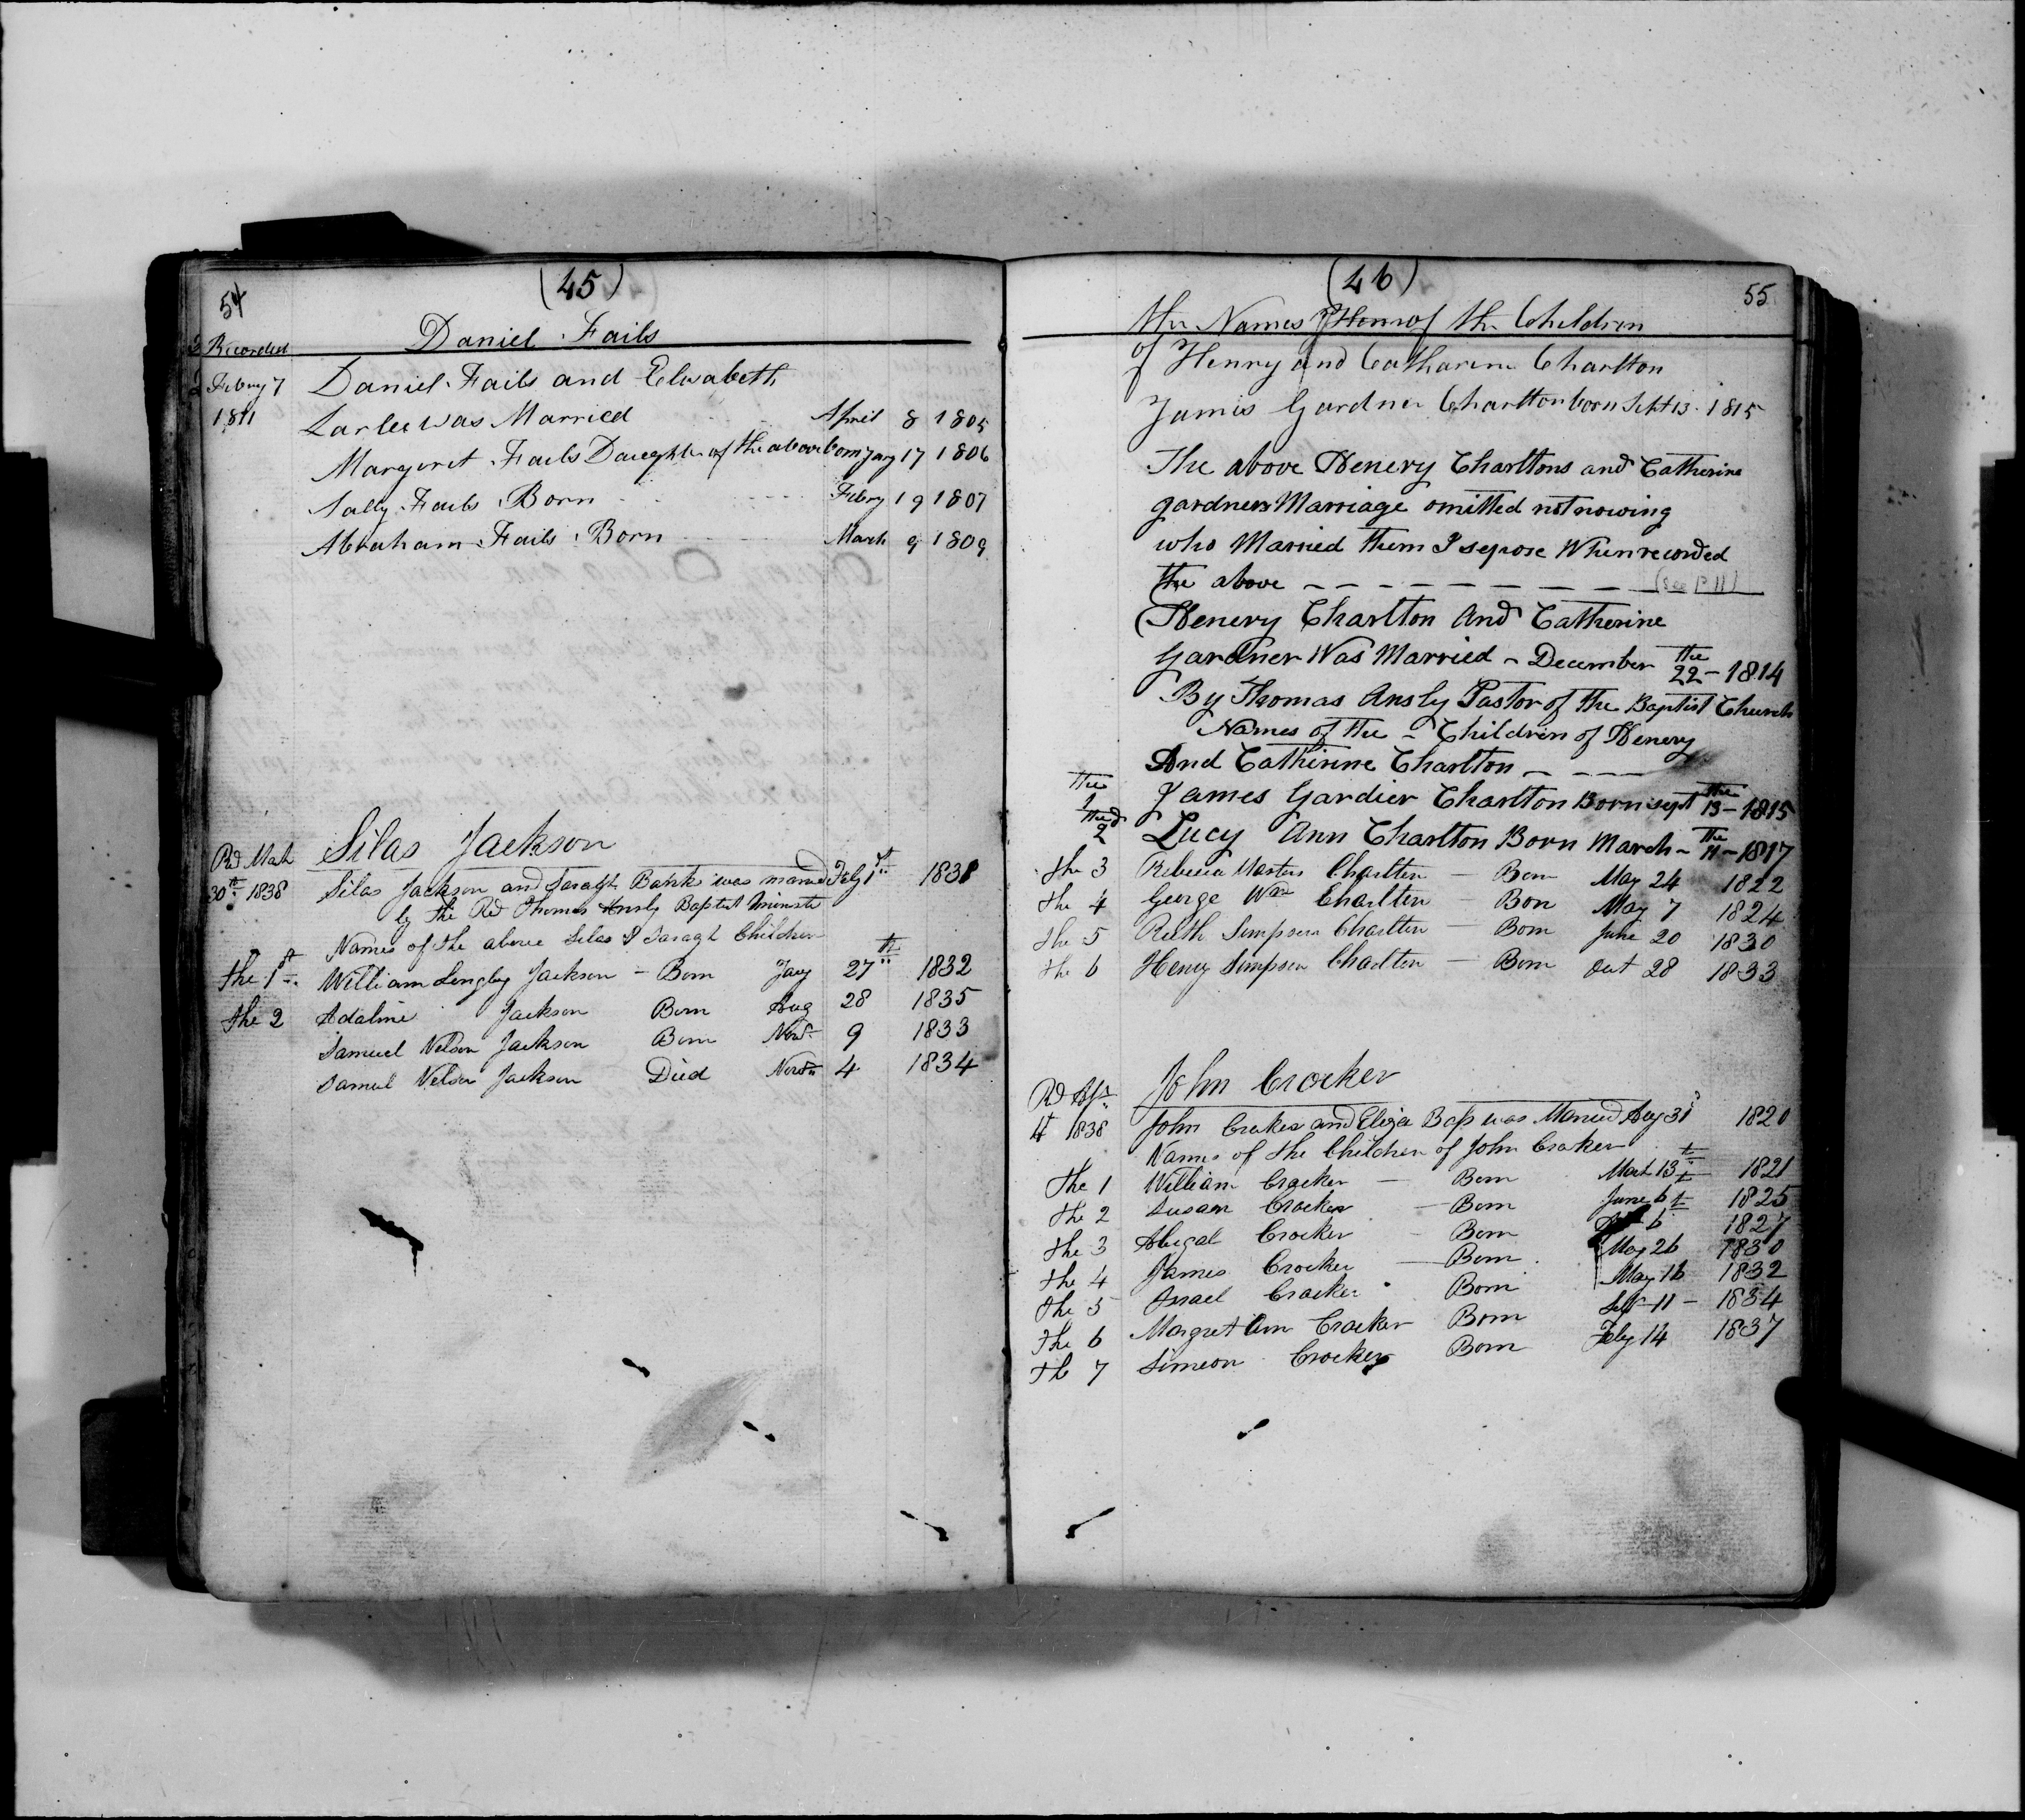 54
(45)
Recorded
Daniel Fails
Febury 7
Daniel Fails and Elisabeth
1811
Larlee was Married April 8 1805
Margeret Fails Daughter of the above born Jany 17 1806
Sally Fails Born Febry 19 1807
Abraham Fails Born March 9 1809
Silas Jackson
Rd Mach
30th 1838
Silas Jackson and Saragh Banks was married Feby 1st 1831
by the Rd Thomas Ansly Baptist Minste
Names of the above Silas & Saragh Children
The 1st William Longley Jackson - Born Jany 27th 1832
The 2 Adaline Jackson Born Aug 28 1835
Samuel Nelson Jackson Born Novr 9 1833
Samuel Nelson Jackson Died Novr 4 1834
(46)
55
the Names of the Children
of Henry and Catharine Charlton
James Gardner Charlton born Sept 13 1815
The above Henery Charltons and Catherine
gardners Marriage omitted not nowing
who Married them I sepose When recorded
the above - - - - - - - (see P 11)
Henery Charlton And Catherine
Gardner Was Married - December the 22 - 1814
By Thomas Ansly Pastor of the Baptist Church
Names of the - Children of Henery
And Catherine Charlton - - - -
the 1 James Gardier Charlton Born sept the 13 - 1815
the 2d Lucy Ann Charlton Born March - the 11 - 1817
the 3 Rebecca Masters Charlton - Born May 24 1822
the 4 George Wm Charlton - Bon May 7 1824
the 5 Ruth Simpson Charlton - Born June 20 1830
the 6 Henry Simpson Charlton - Born Oct 28 1833
John Crocker
Rd Apr
4t 1838
John Crocker and Eliza Bass was Maried Aug 31 1820
Names of the Children of John Crocker
The 1 William Crocker - Born Mach 13th 1821
The 2 Susan Crocker - Born June 6t 1825
The 3 Abigal Crocker - Born 6 1827
The 4 James Crocker - Born May 26 1830
The 5 Israel Crocker Born May 16 1832
The 6 Margret Ann Crocker Born Sept 11 - 1834
Th 7 Simeon Crocker Born Feby 14 1837